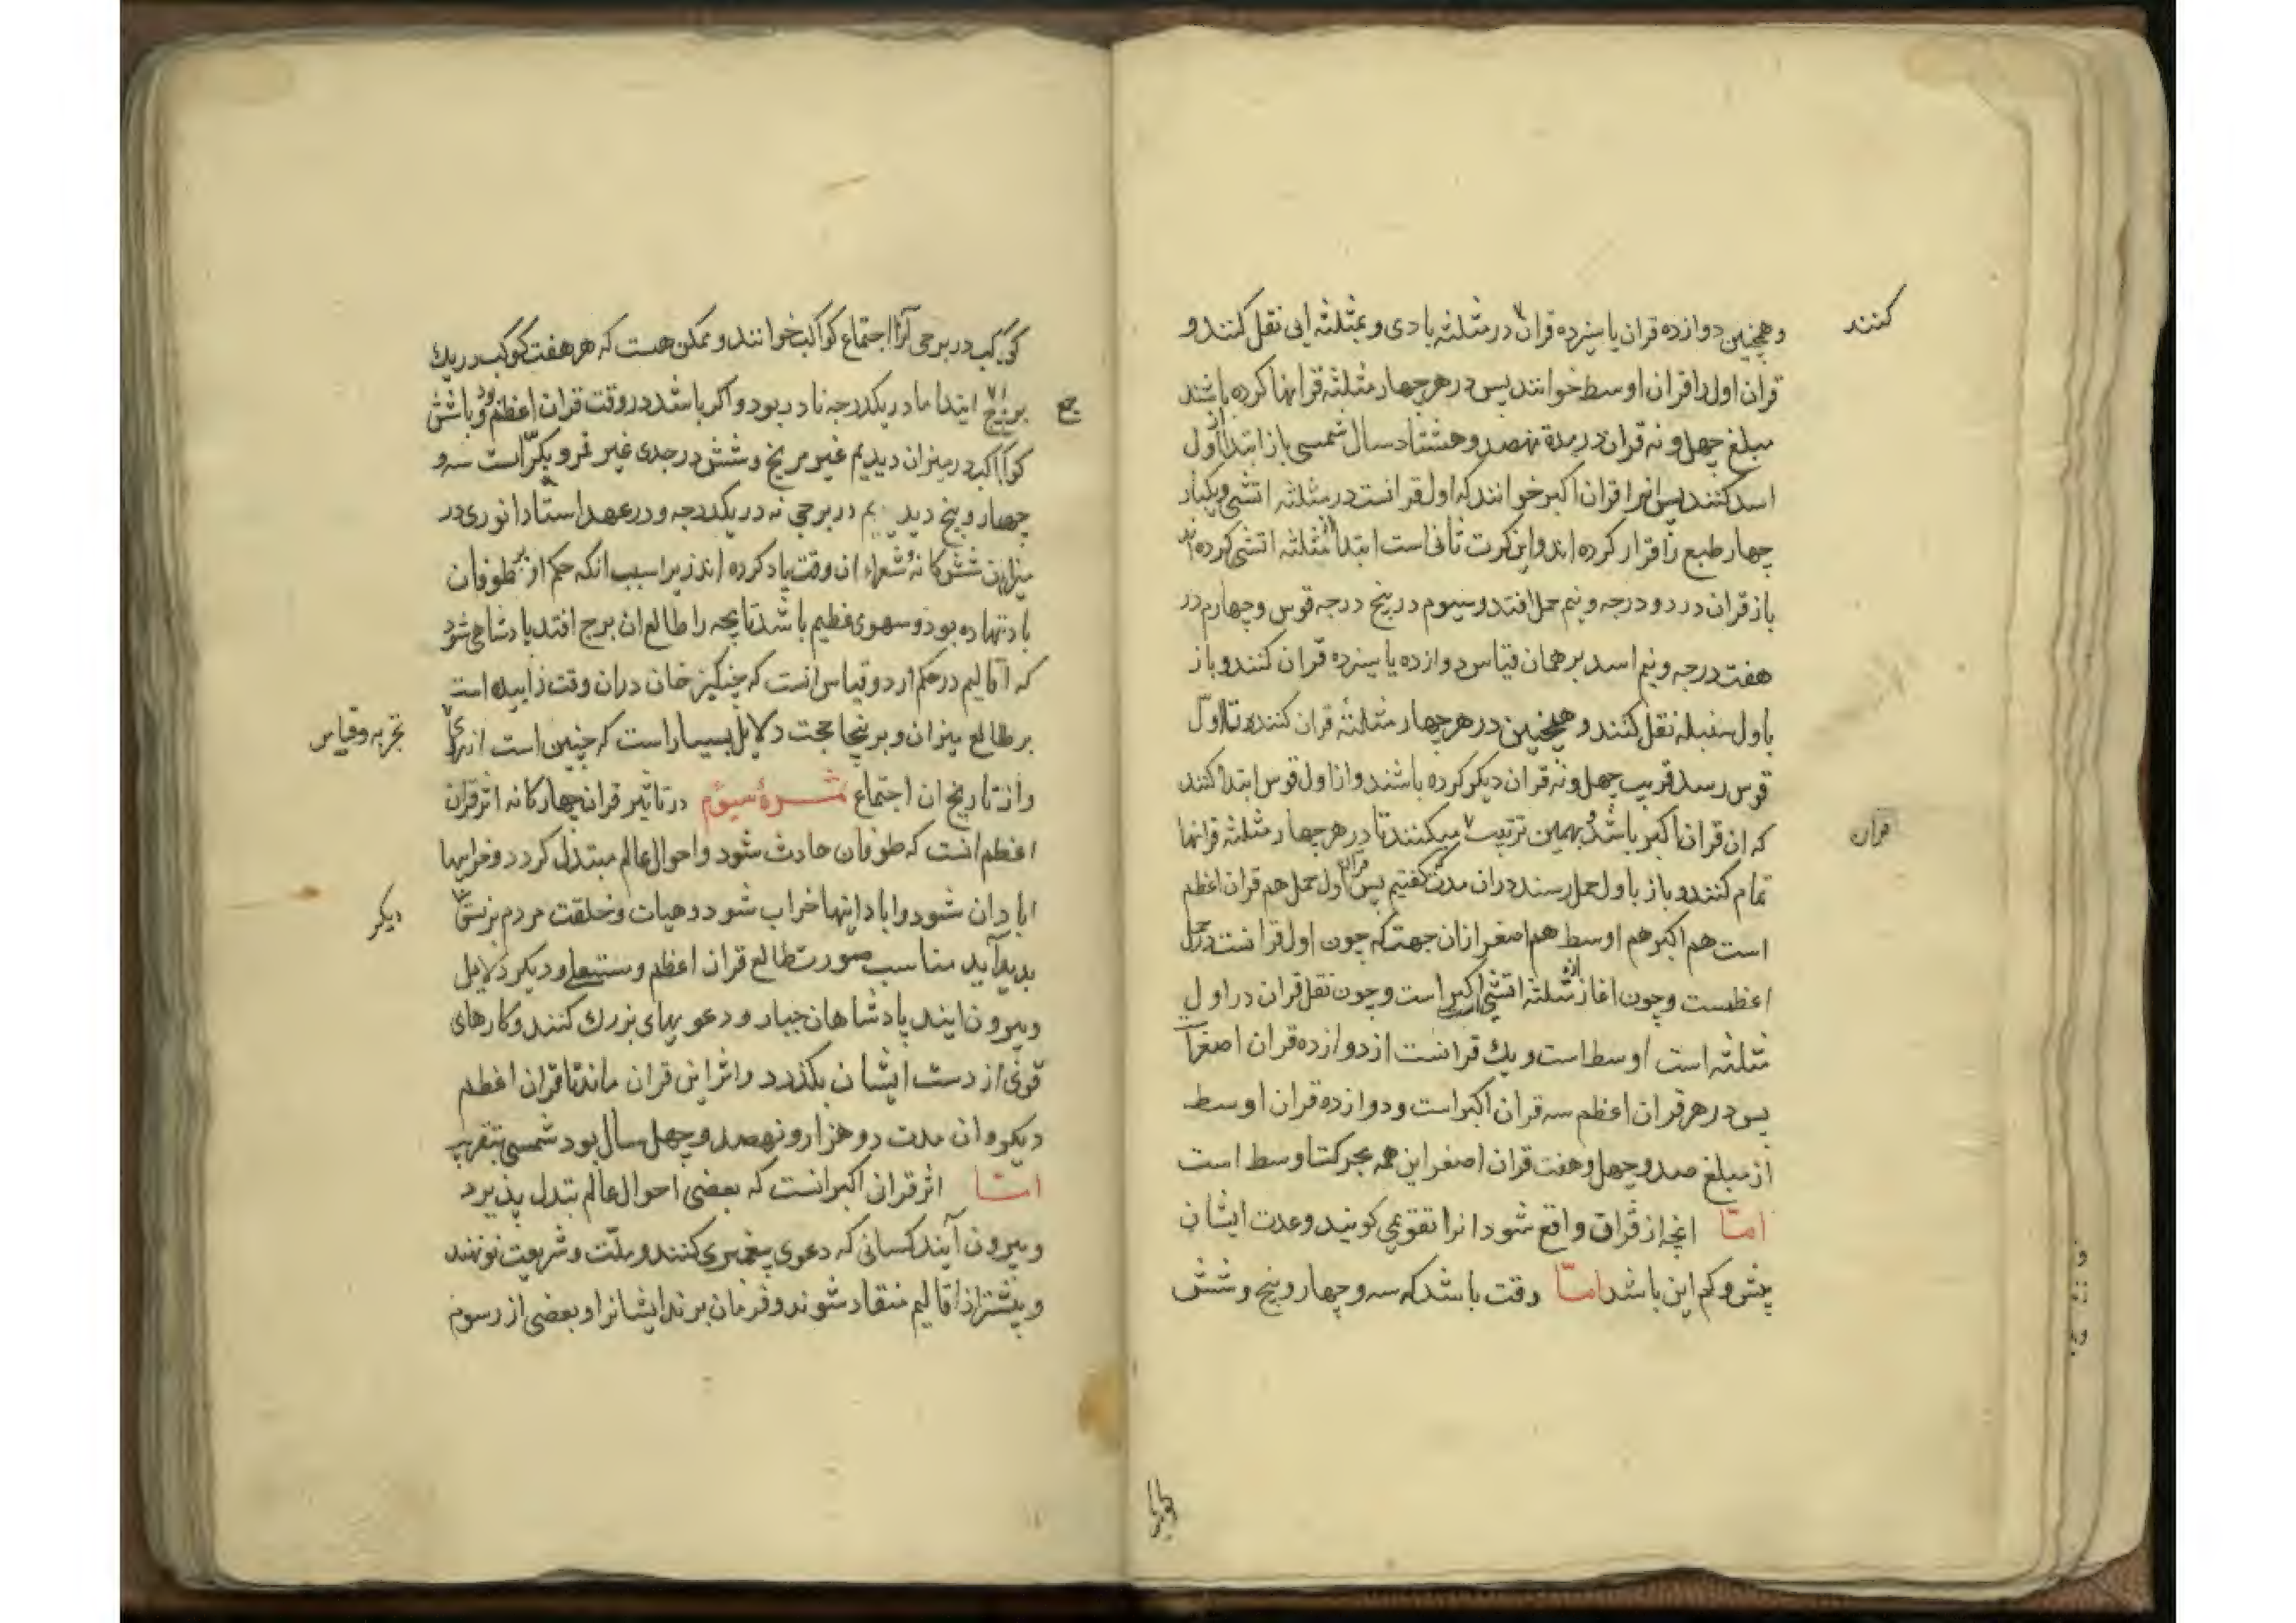 وهمچنین دوازده قران یا سیزده قران در مثلثه بادی و بمثلثه ابی نقل کنند و
کنند
قران اول را قران اوسط خوانند پس در هر چهار مثلثه قرانها کرده باشند
مبلغ چهل و نه قران در مدة نهصد و هشتاد سال شمسی باز ابتدا از اول
اسد کنند پس انرا قران اکبر خوانند که اول قرانست در مثلثه اتشی و یکبار
چهار طبع را قرار کرده اند و این کرت ثانی است ابتدا از مثلثه اتشی کرده اند
باز قران در دو درجه و نیم حمل افتد و سیوم در پنج درجه قوس و چهارم در
هفت درجه و نیم اسد بر همان قیاس دوازده یا سیزده قران کنند و باز
باول سنبله نقل کنند و همچنین در هر چهار مثلثه قران کننده تا اول
قوس رسد قریب چهل و نه قران دیکر کرده باشند و از اول قوس ابتدا کنند
که ان قران اکبر باشد و بهمین ترتیب میکنند تا در هر چهار مثلثه قرانها
قران
تمام کنند و باز باول حمل رسند در ان مدت که کفتیم پس قران اول حمل هم قران اعظم
است هم اکبر هم اوسط هم اصغر ازان جهت که چون اول قرانست در حمل
اعظمست و چون اغاز از مثلثه اتشی اکبر است و چون نقل قران در اول
مثلثه است اوسط است و یک قرانست از دوازده قران اصغر است
پس در هر قران اعظم سه قران اکبر است و دوازده قران اوسط
از مبلغ صد و چهل و هفت قران اصغر این همه بحرکتا وسط است
اما انچه از قران واقع شود انرا تقویمی کویند و عدت ایشان
بیش و کم این باشد اما وقت باشد که سه و چهار و پنج و شش
کوکب در برجی آنرا اجتماع کواکب خوانند و ممکن هست که هر هفت کوکب در یک
برج ایند اما در یکدرجه نادر بود و اکر باشد در وقت قران اعظم بود و ما شش
جمع
کواکب در میزان دیدیم غیر مریخ و شش در جدی غیر قمر و بکرّات سه و
چهار و پنج دیدیم در برجی نه در یکدرجه و در عهد استاد انوری در
میزان شش کانه شعراء ان وقت یاد کرده اند زیرا سبب انکه حکم از طوفان
باد نهاده بود و سهوی عظیم باشد تا بچه را طالع ان برج افتد پادشاهی شود
که اقالیم در حکم ارد و قیاس انست که چنکیز خان دران وقت زاییده است
بر طالع میزان و برینجا حجت دلایل بسیار است که چنین است از
تجربه و قیاس
و از تاریخ ان اجتماع ثمرهٔ سیوم در تاثیر قران چهارکانه اثر قران
اعظم انست که طوفان حادث شود و احوال عالم مبتدل کردد و خرابیها
ابادان شود و ابادانیها خراب شود و هیات و خلقت مردم بر
دیکر
بدید آید مناسب صورت طالع قران اعظم و دیکر دلایل
و بیرون ایند پادشاهان جبار و دعویهای بزرک کنند و کارهای
قوی از دست ایشان بکذرد و اثر این قران ماند تا قران اعظم
دیکر و ان مدت دو هزار و نهصد و چهل سال بود شمسی بتقریب
اما اثر قران اکبر انست که بعضی احوال عالم تبدل پذیرد
و بیرون آیند کسانی که دعوی پیغمبری کنند و ملت و شریعت نو نهند
و بیشتر از اقالیم منقاد شوند و فرمان برند ایشانرا و بعضی از رسوم